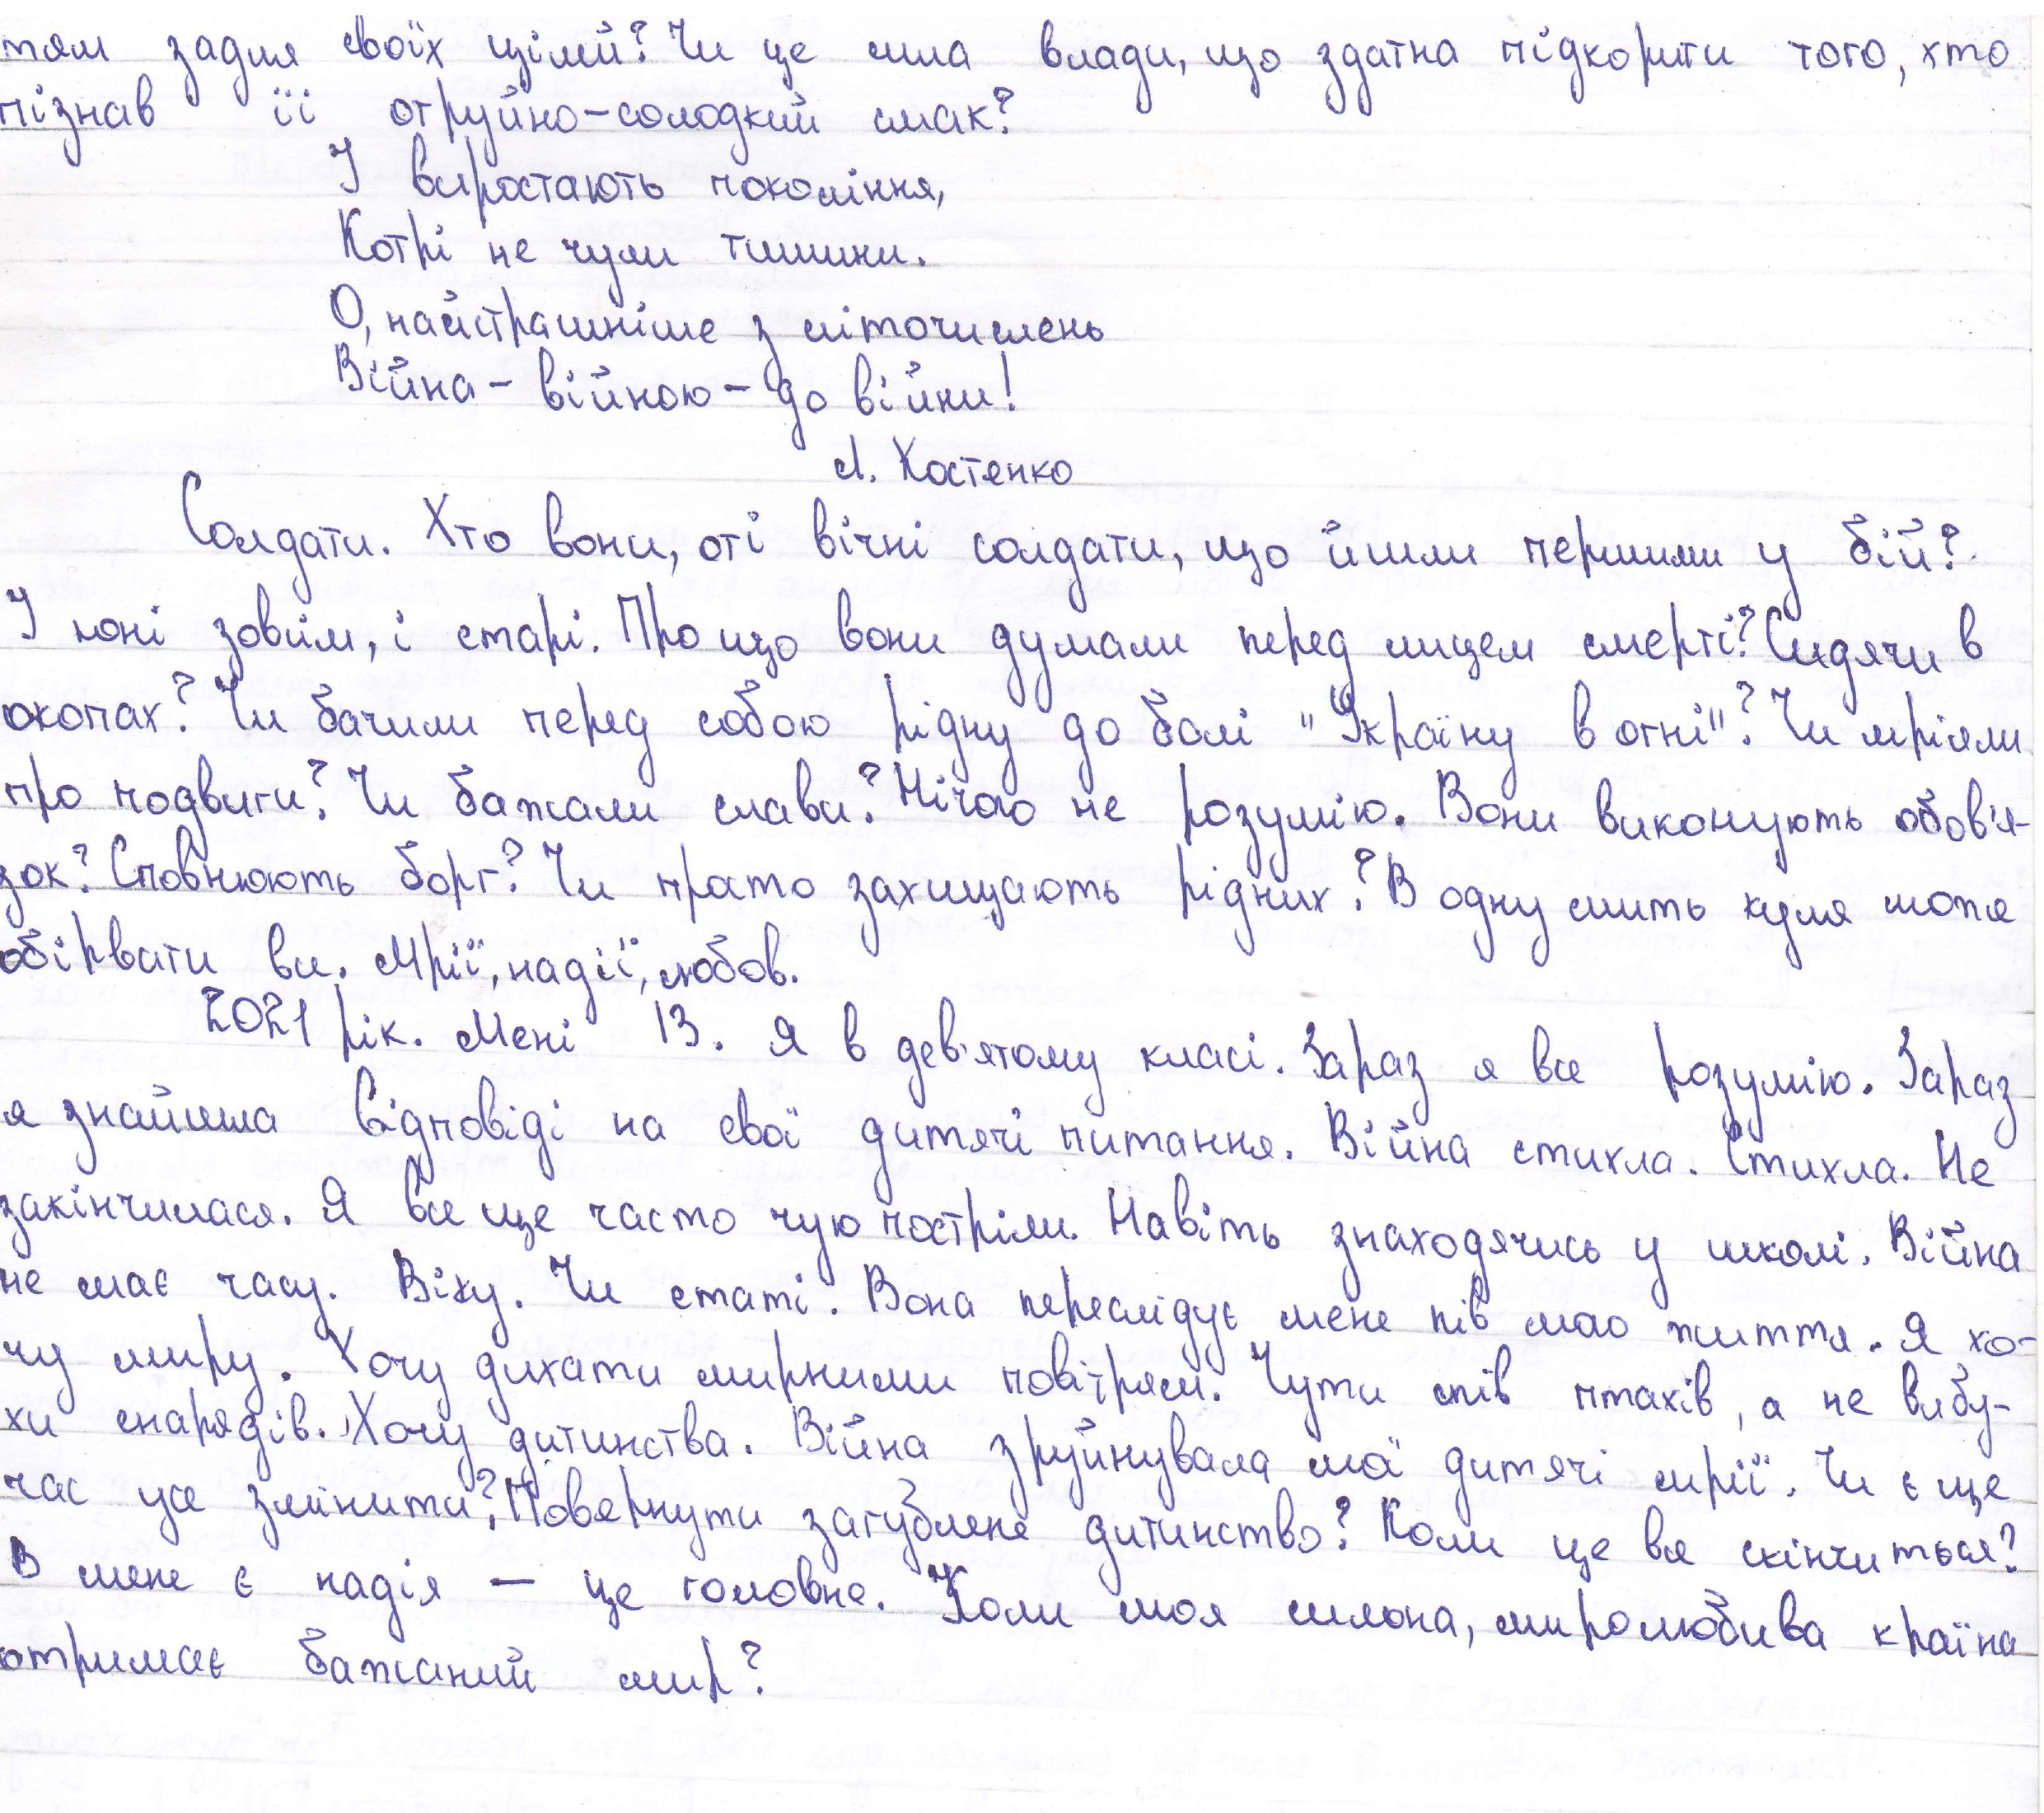 тям задля своїх цілей? Чи це сила влади, що здатна підкорити того, хто
пізнав її отруйно-солодкий смак?
І виростають покоління,
Котрі не чули тишини.
О, найстрашніше з літочислень
Війна - війною - до війни!
Л. Костенко
Солдати. Хто вони, оті вічні солдати, що йшли першими у бій?
І юні зовсім, і старі. Про що вони думали перед лицем смерті? Сидячи в
окопах? Чи бачили перед собою рідну до болі "Україну в огні"? Чи мріяли
про подвиги? Чи бажали слави? Нічого не розумію. Вони виконують обов'я-
зок? Сповнюють борг? Чи просто захищають рідних? В одну мить куля може
обірвати все. Мрії, надії, любов.
2021 рік. Мені 13. Я в дев'ятому класі. Зараз я все розумію. Зараз
я знайшла відповіді на свої дитячі питання. Війна стихла. Стихла. Не
закінчилася. Я все ще часто чую постріли. Навіть знаходячись у школі. Війна
не має часу. Віку. Чи статі. Вона переслідує мене пів мого життя. Я хо-
чу миру. Хочу дихати мирними повітрям. Чути спів птахів, а не вибу-
хи снарядів. Хочу дитинства. Війна зруйнувала мої дитячі мрії. Чи є ще
час усе змінити? Повернути загублене дитинство? Коли це все скінчиться?
В мене є надія — це головне. Коли моя сильна, миролюбива країна
отримає бажаний мир?